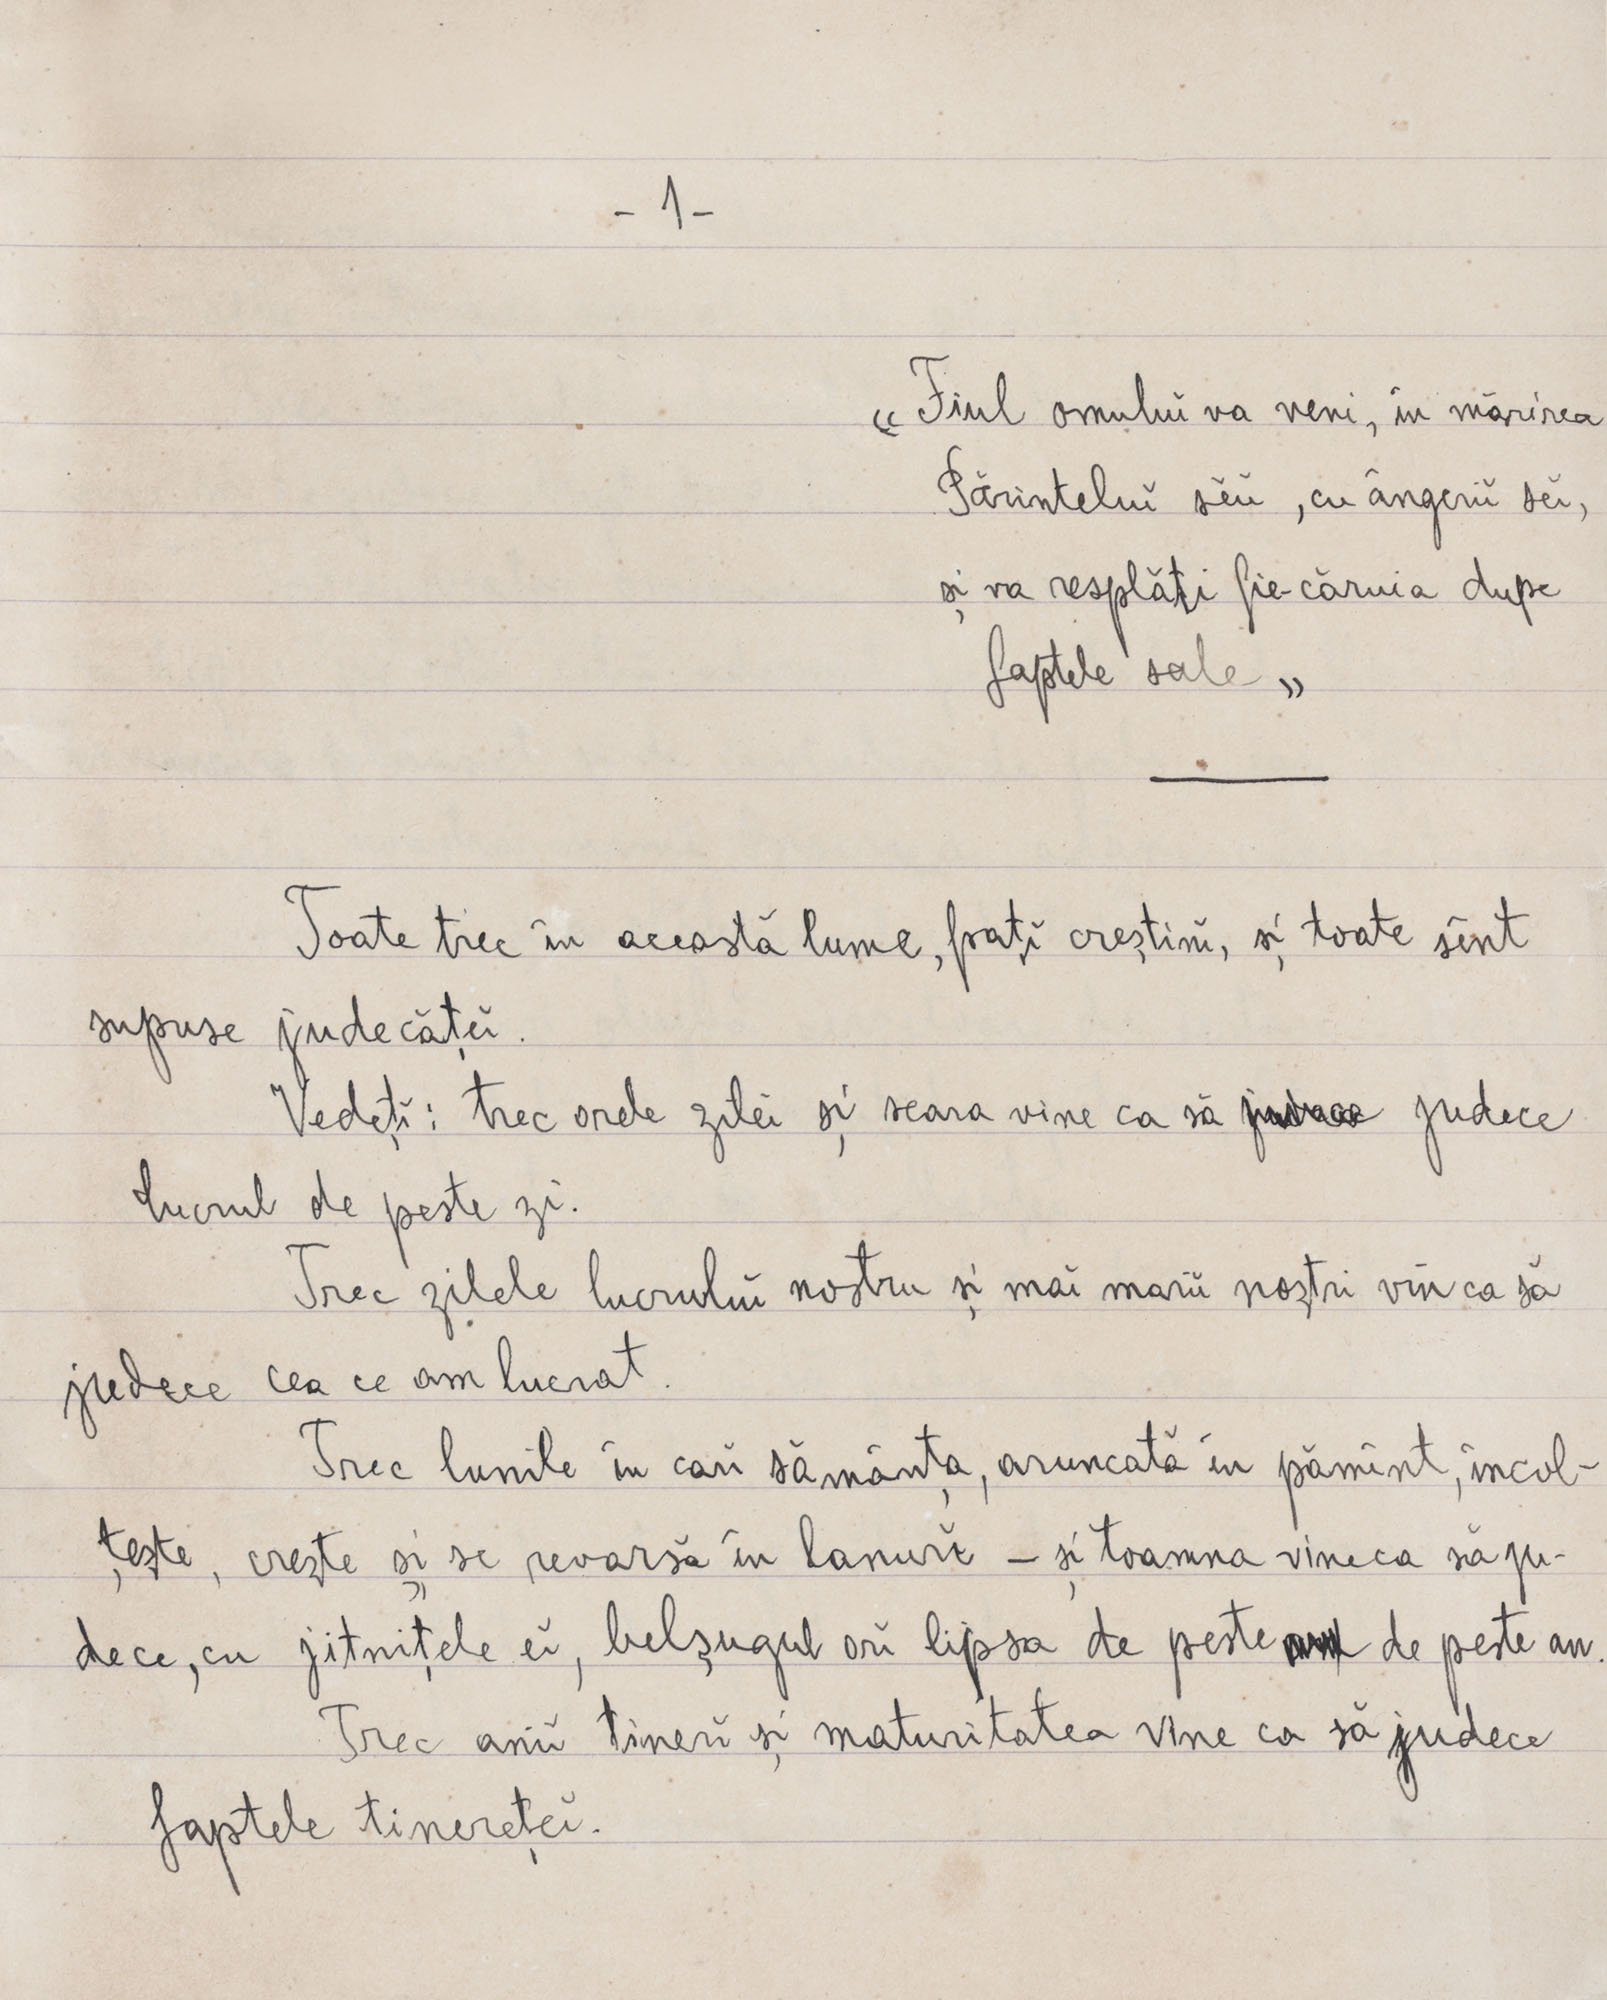 - 1 -
« Fiul omuluĭ va veni, în mărirea
Părinteluĭ sĕŭ, cu ângeriĭ sĕi,
și va resplăti fie-căruia dupe
faptele sale »
Toate trec în această lume, frațĭ creștinĭ, și toate sînt
supuse judecățeĭ.
Vedețĭ: trec orele zileĭ și seara vine ca să judece
lucrul de peste zi.
Trec zilele lucruluĭ nostru și maĭ mariĭ noștri vin ca să
judece cea ce am lucrat.
Trec lunile în carĭ sămânța, aruncată în pămînt, încol-
țește, crește și se revarsă în lanurĭ – și toamna vine ca să ju-
dece, cu jitnițele eĭ, belșugul orĭ lipsa de peste de peste an.
Trec aniĭ tinerĭ și maturitatea vine ca să judece
faptele tinerețeĭ.